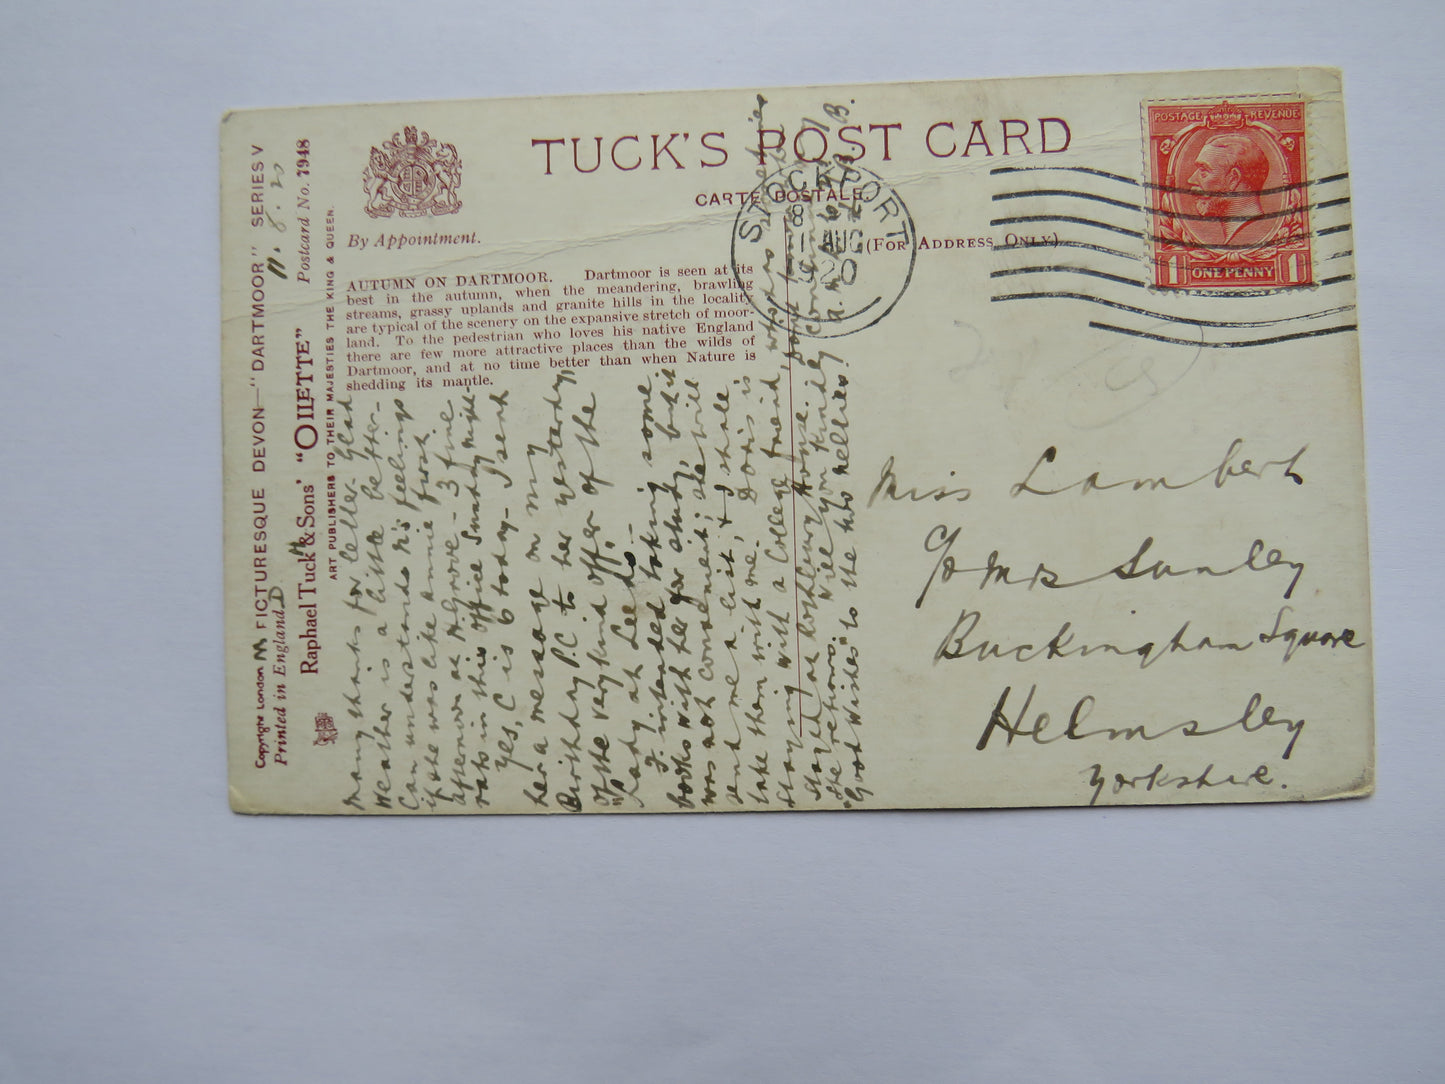 TUCK'S POST CARD
CARTE POSTALE
(FOR ADDRESS ONLY)
By Appointment.
POSTAGE REVENUE
1 ONE PENNY 1
STOCKPORT
AUG
20
AUTUMN ON DARTMOOR. Dartmoor is seen at its
best in the autumn, when the meandering, brawling
streams, grassy uplands and granite hills in the locality
are typical of the scenery on the expansive stretch of moor-
land. To the pedestrian who loves his native England
there are few more attractive places than the wilds of
Dartmoor, and at no time better than when Nature is
shedding its mantle.
Miss Lambert
c/o Mrs Sunley
Buckingham Square
Helmsley
Yorkshire.
Copyright London M PICTURESQUE DEVON—"DARTMOOR" SERIES V
Printed in England. 11.8.20
Raphael Tuck & Sons' "OILETTE" Postcard No. 7948
ART PUBLISHERS TO THEIR MAJESTIES THE KING & QUEEN.
Many thanks for letter. Glad
Heather is a little better.
Can understand his feelings
if she was like Annie first
afternoon at Grove - 3 fine
rats in this office Sunday night
Yes, C is 6 today - I sent
her a message on my
Birthday P.C to her yesterday,
of the very kind offer of the
"Lady at Leeds."
I intended taking some
books with her for study, but it
was not convenient; she will
send me a list, & I shall
take them with me. Doris is
staying with a College friend, who
stayed at House. Will you kindly
She returns
"Good Wishes" to the two Nellies!